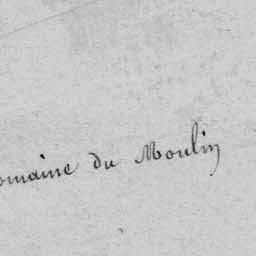 omaine du Moulin